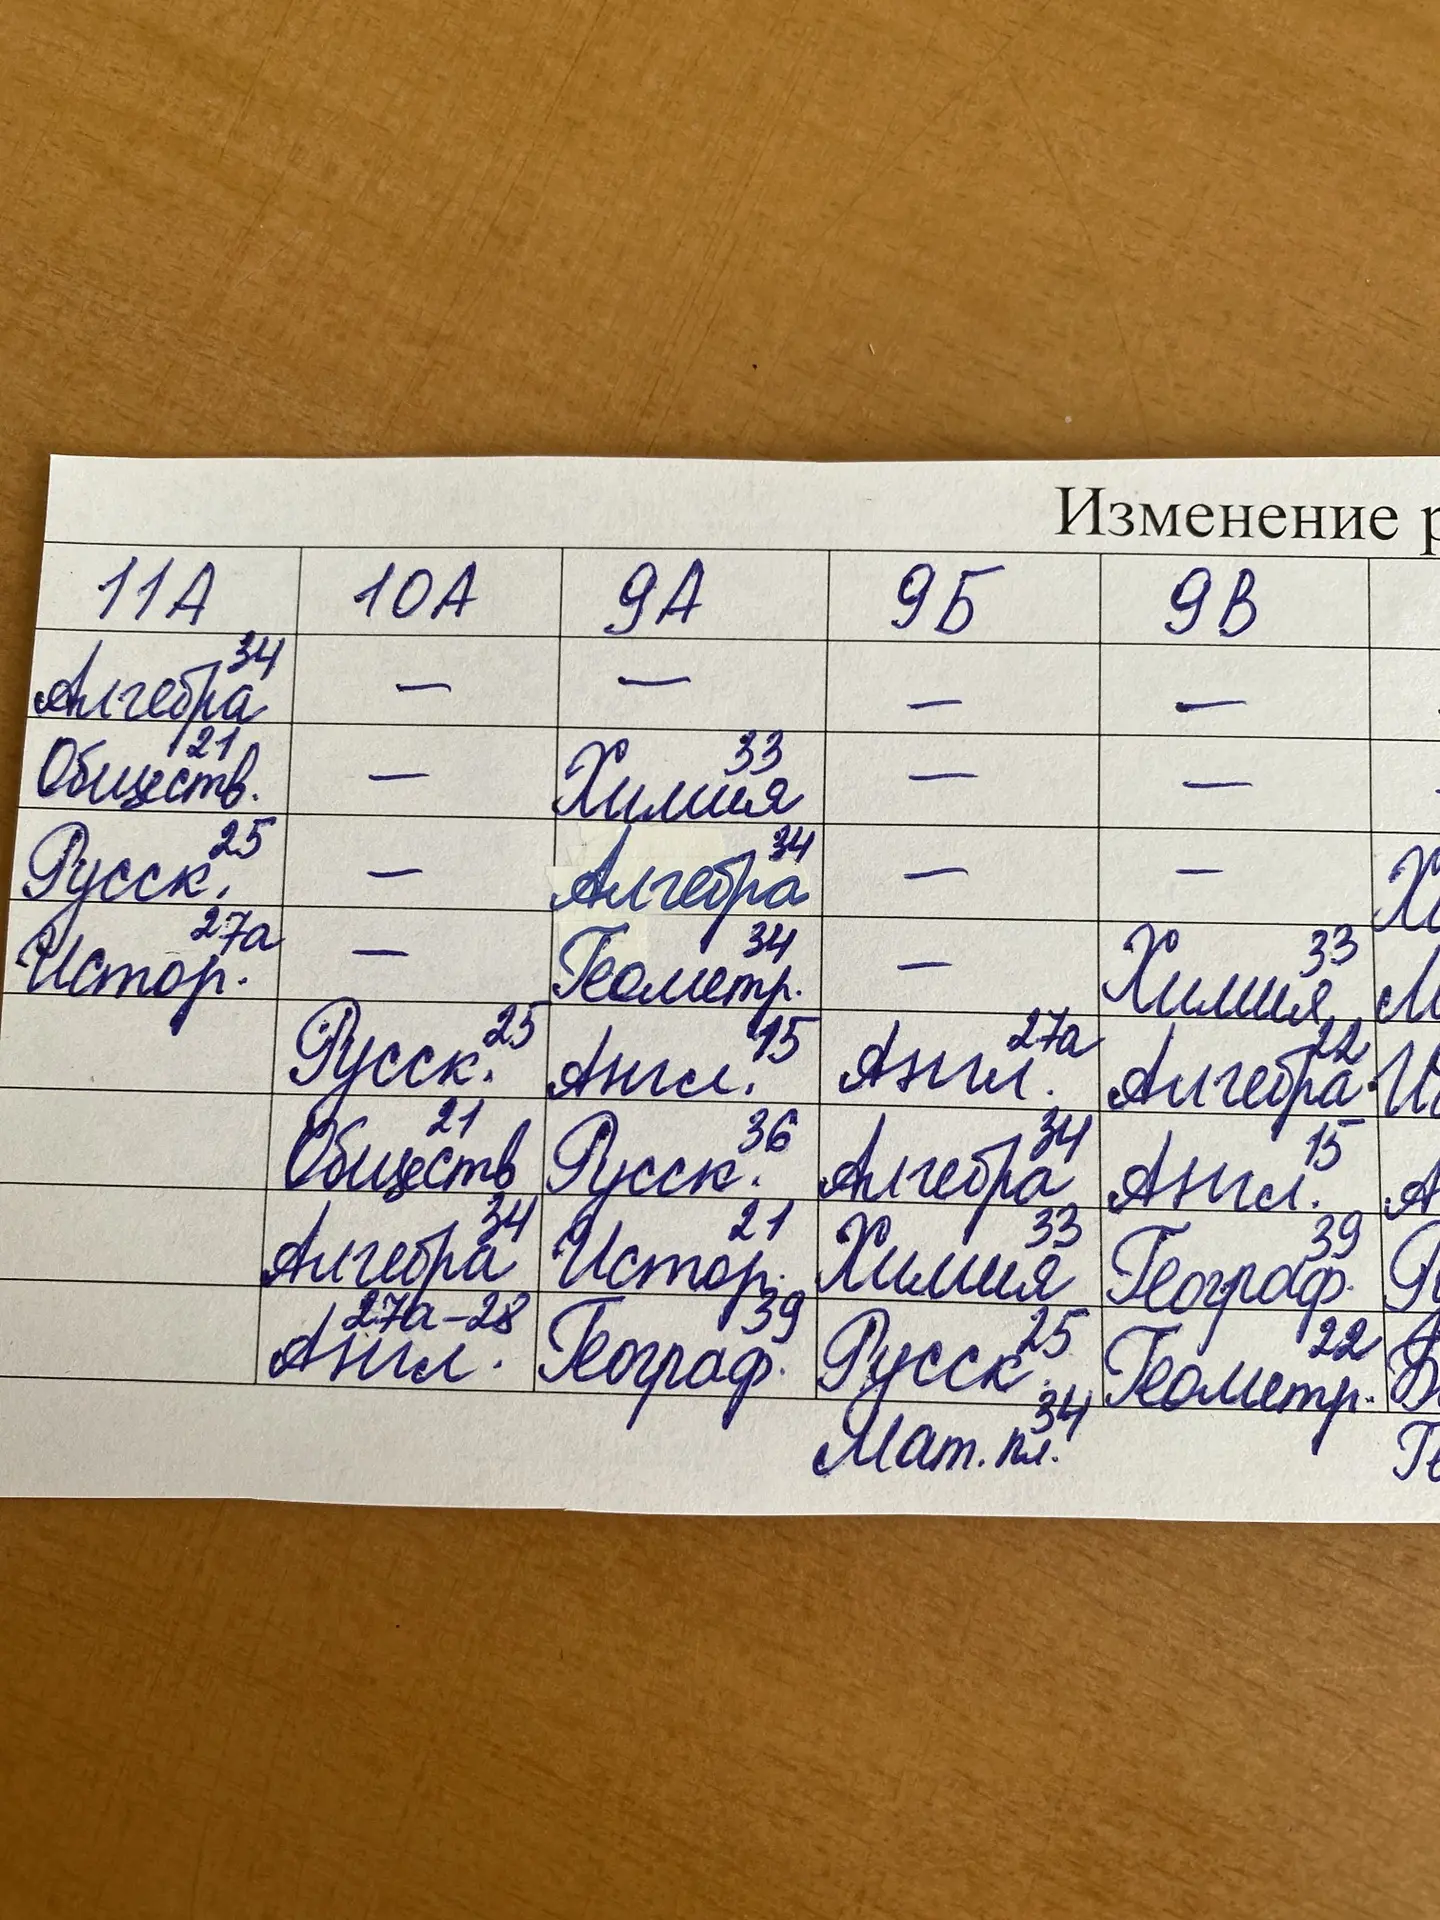 Изменение
11А 10А 9А 9Б 9В
Алгебра 34 — — — —
Обществ. 21 — Химия 33 — —
Русск. 25 — Алгебра 34 — —
Истор. 27а — Геометр. 34 — Химия 33
Русск. 25 Англ. 15 Англ. 27а Алгебра 22
Обществ 21 Русск. 36 Алгебра 34 Англ. 15
Алгебра 34 Истор. 21 Химия 33 Географ. 39
Англ. 27а-28 Географ. 39 Русск. 25 Геометр. 22
Мат. пл. 34